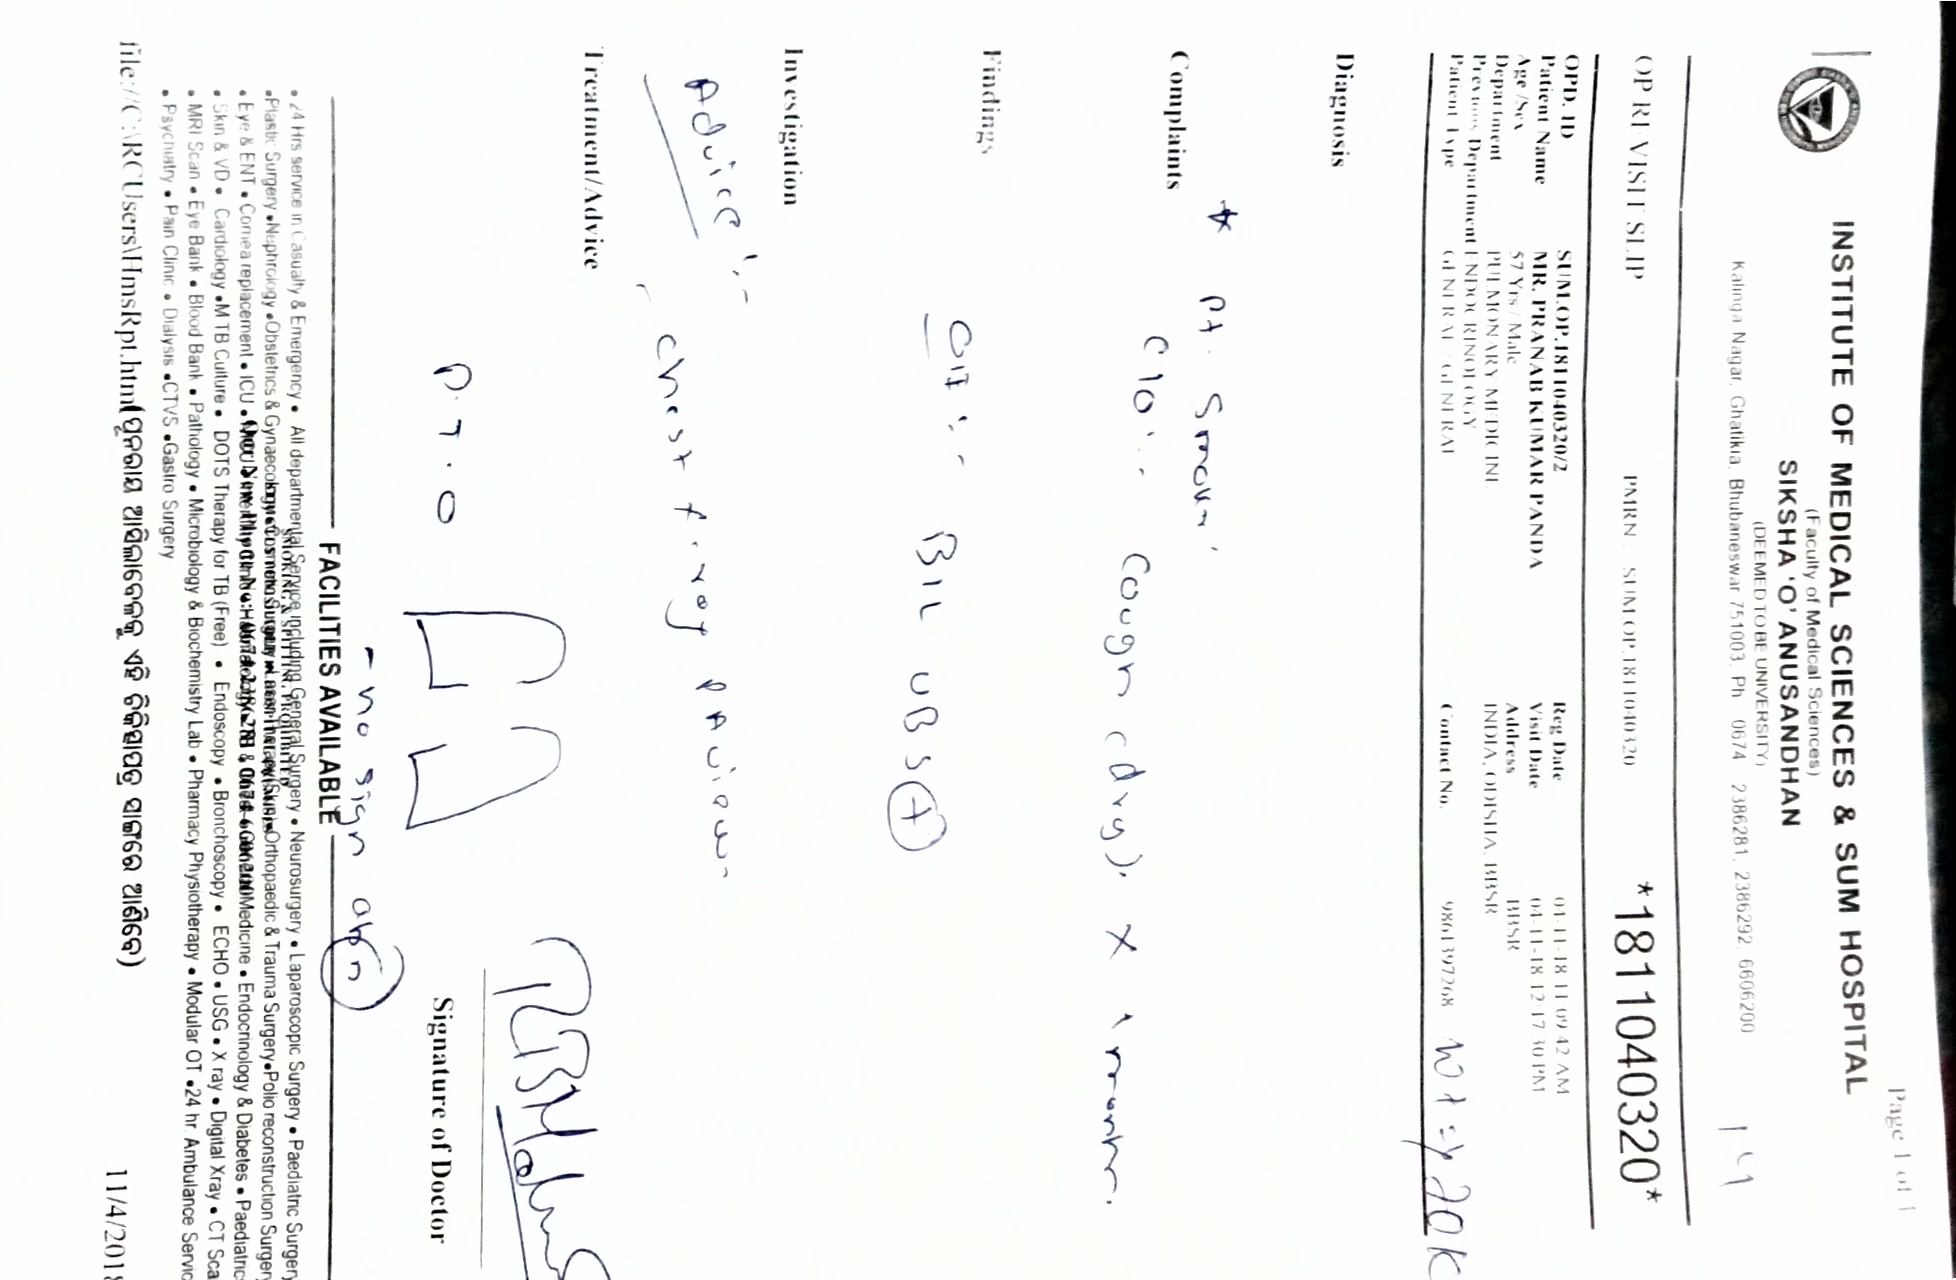 Page 1 of 1
INSTITUTE OF MEDICAL SCIENCES & SUM HOSPITAL
(Faculty of Medical Sciences)
SIKSHA 'O' ANUSANDHAN
(DEEMED TO BE UNIVERSITY)
Kalinga Nagar, Ghatikia, Bhubaneswar 751003, Ph 0674 2386281, 2386292, 6606200
14
OP REVISIT SLIP PMRN SUM.OP.1811040320 *1811040320*
OPD. ID SUM.OP.1811040320/2 Reg Date 04-11-18 11 09 42 AM
Patient Name MR. PRANAB KUMAR PANDA Visit Date 04-11-18 12 17 30 PM
Age /Sex 57 Yrs / Male Address BBSR
Department PULMONARY MEDICINE INDIA, ODISHA, BBSR
Previous Department ENDOCRINOLOGY
Patient Type GENERAL / GENERAL Contact No. 9861397268 Wt => 70K
Diagnosis
* Pt. Smoker
Complaints
C/O :- Cough (dry). X 1 month.
Findings
O/E :- B/L VBS +
Investigation
Advice :-
- Chest x-ray PA view-
Treatment/Advice
P.T.O
Signature of Doctor
- no sign abn
FACILITIES AVAILABLE
• 24 Hrs service in Casualty & Emergency • All departmental Service including General Surgery • Neurosurgery • Laparoscopic Surgery • Paediatric Surgery
SMOKING & SPITTING PROHIBITED
•Plastic Surgery •Nephrology •Obstetrics & Gynaecology •Cosmetic Surgery • Laser Therapy (Skin) •Orthopaedic & Trauma Surgery•Polio reconstruction Surgery
• Eye & ENT • Cornea replacement • ICU • Medicine • Endocrinology & Diabetes • Paediatric
• Skin & VD • Cardiology •M TB Culture • DOTS Therapy for TB (Free) • Endoscopy • Bronchoscopy • ECHO • USG • X ray • Digital Xray • CT Sca
• MRI Scan • Eye Bank • Blood Bank • Pathology • Microbiology & Biochemistry Lab • Pharmacy Physiotherapy • Modular OT •24 hr Ambulance Servic
• Psychiatry • Pain Clinic • Dialysis •CTVS •Gastro Surgery
file://C:\RCUsers\HmsRpt.htm(ପୂନରାୟ ଆସିଲାବେଳକୁ ଏହି ଚିକିତ୍ସାପତ୍ର ସାଙ୍ଗରେ ଆଣିବେ)
11/4/2018